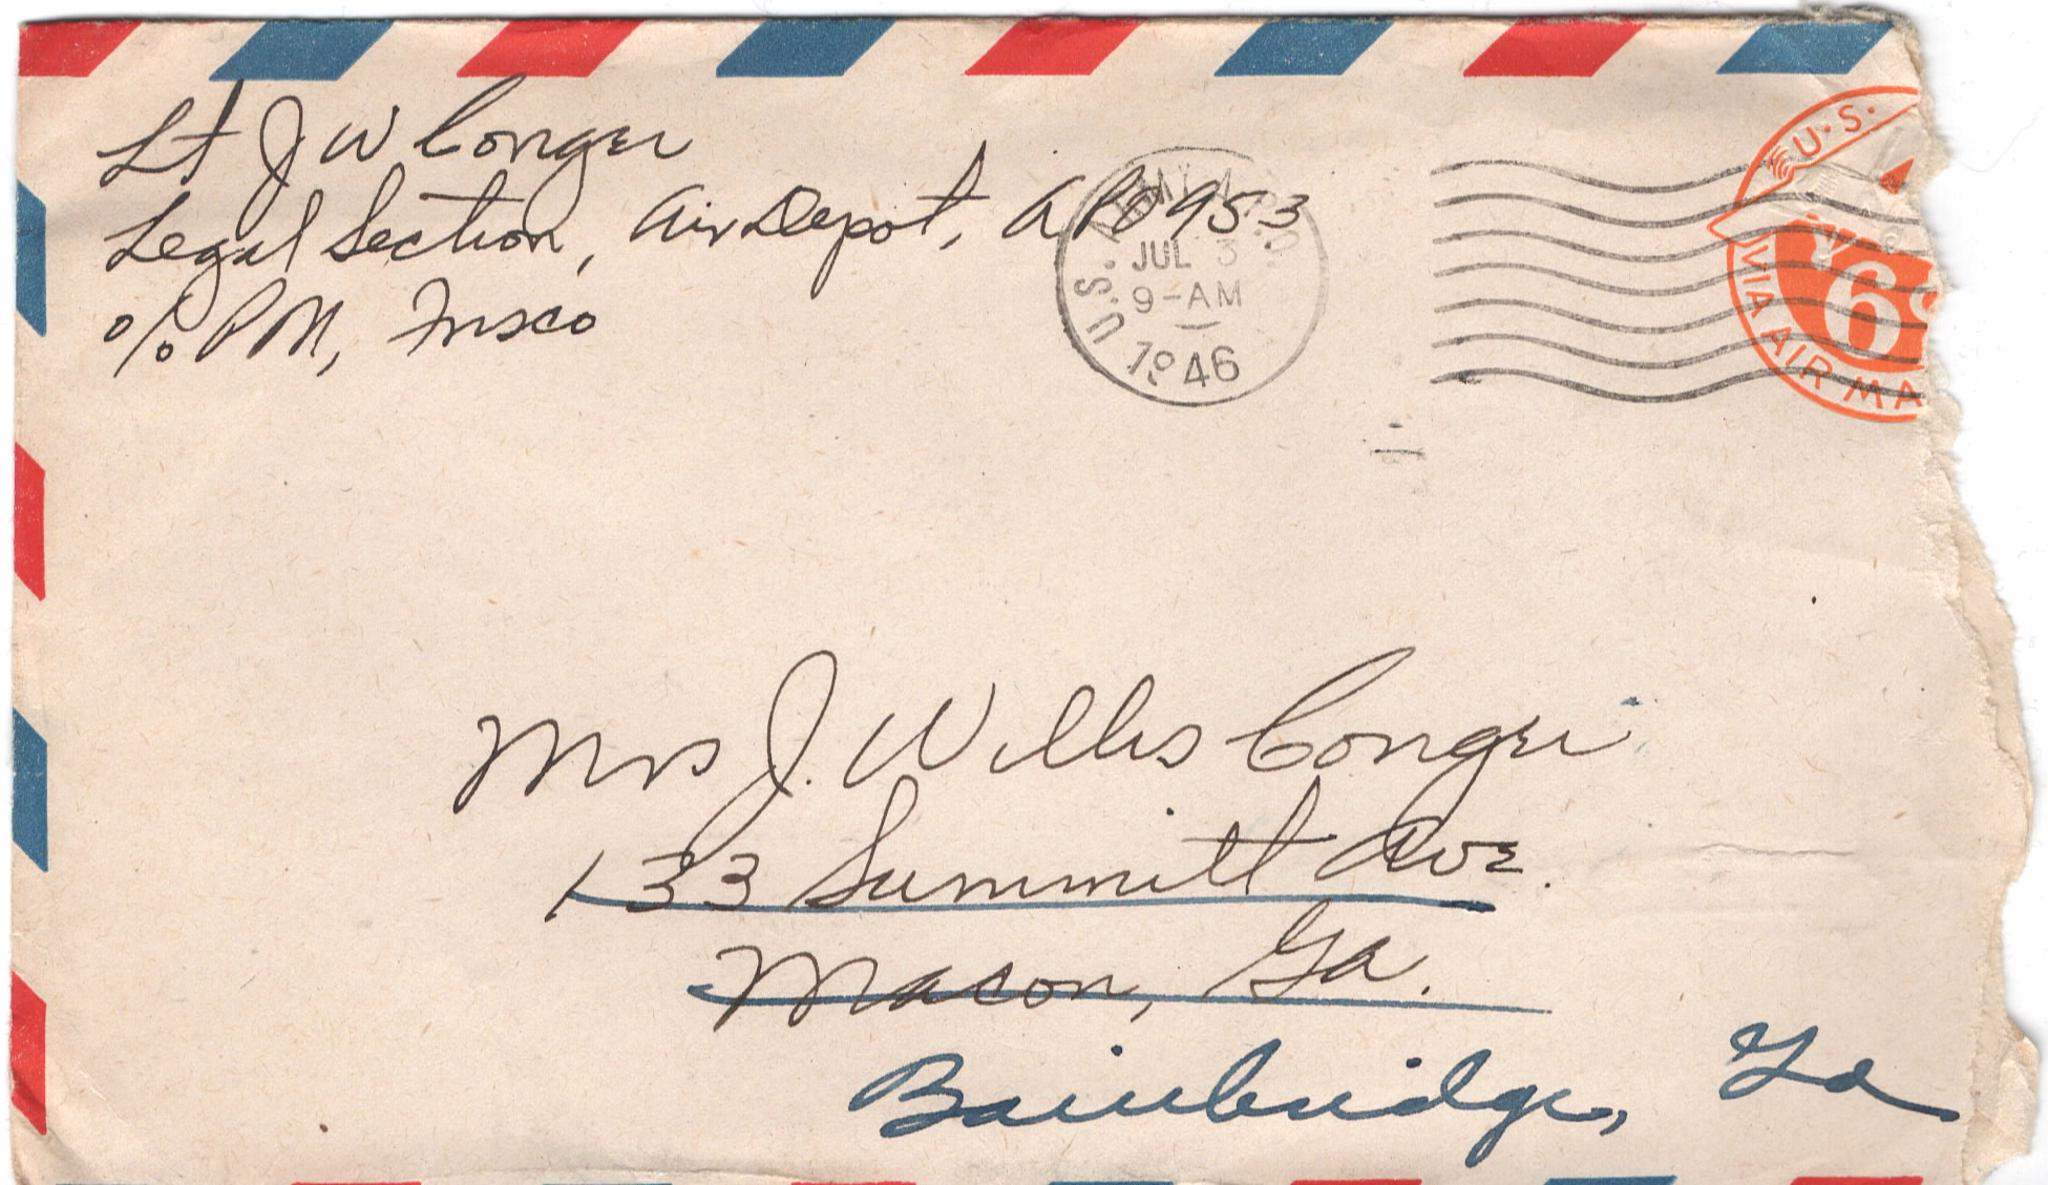 Lt J W Conger
Legal Section, Air Depot, APO 953
c/o PM, Frisco
U.S. ARMY A.P.O.
JUL 3
9-AM
1946
U.S.
6¢
VIA AIR MA
Mrs J. Willis Conger
133 Summitt Ave.
Macon, Ga.
Bainbridge, Ga